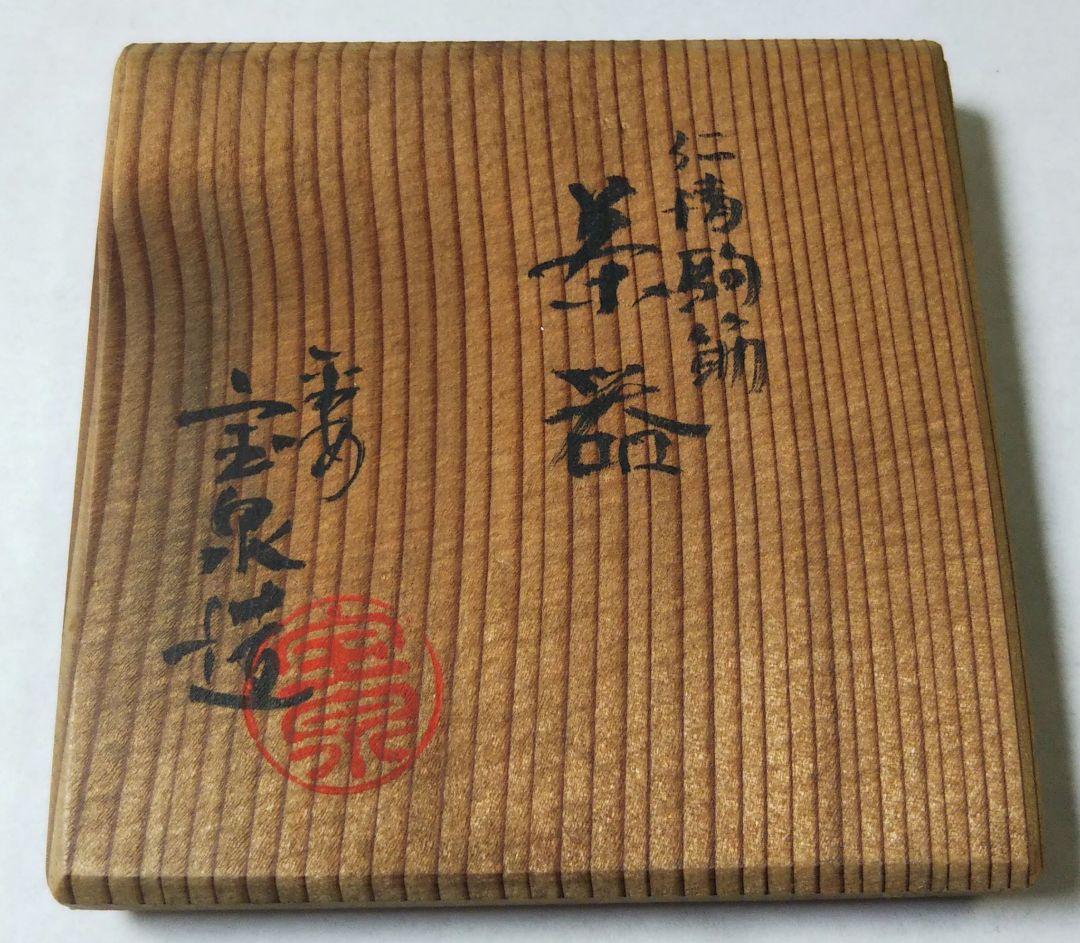 仁清駒筋
茶器
平安
宝泉造
宝泉